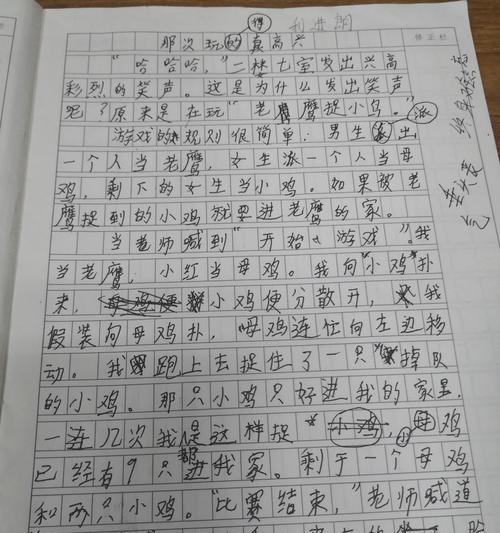 那次玩的得真高兴
修正栏
"哈哈哈,"二楼七室发出兴高
彩烈的笑声。这是为什么发出笑声
呢?原来是在玩"老鹰捉小鸟。"
游戏的规则很简单:男生派出
一个人当老鹰,女生派一个人当母
鸡,剩下的女生当小鸡。如果被老
鹰捉到的小鸡就要进老鹰的家。
当老师喊到"开始游戏"。我
当老鹰,小红当母鸡。我向小鸡扑
来,小鸡便分散开,我
假装向母鸡扑,母鸡连忙向左边移
动。我跑上去捉住了一只掉队
的小鸡。那只小鸡只好进我的家里,
一连几次我是这样捉小鸡,小鸡
已经有9只都进我家。剩于一个母鸡
和两只小鸡。"比赛结束,"老师喊道